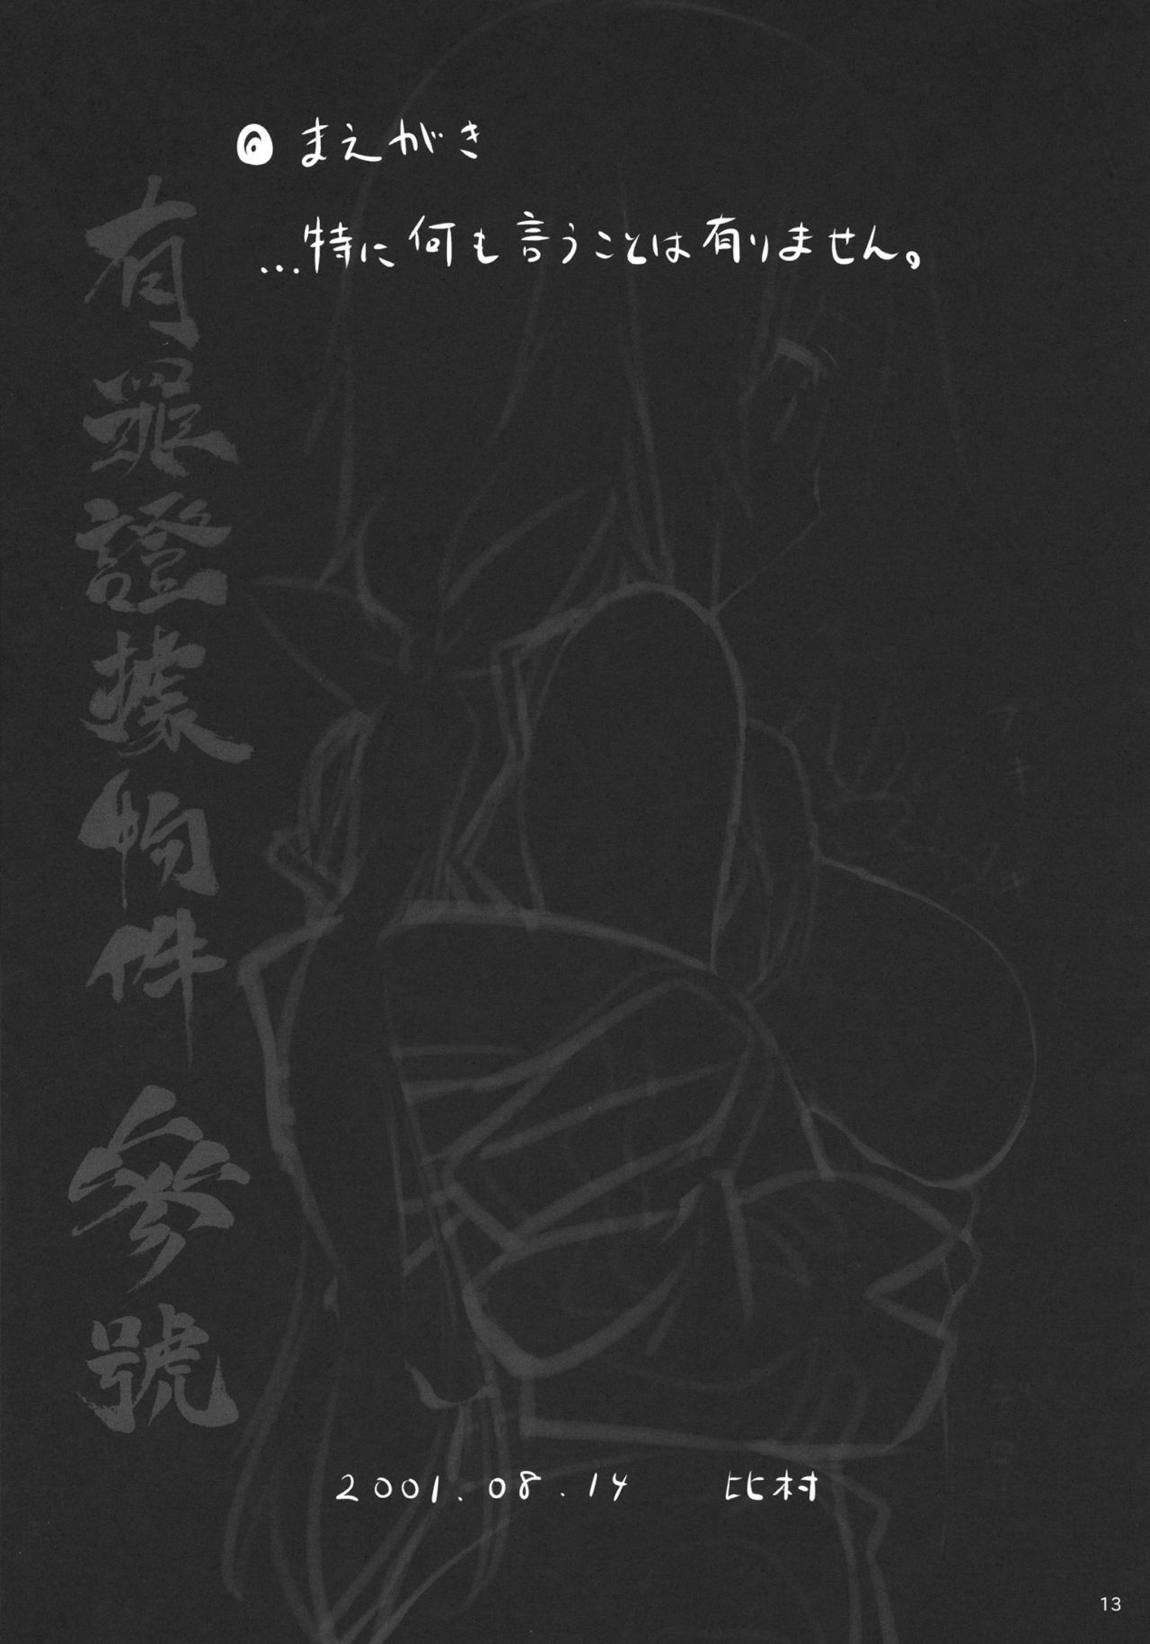 まえがき
…特に何も言うことは有りません。
有罪證據物件 參號
2001.08.14 比村
13